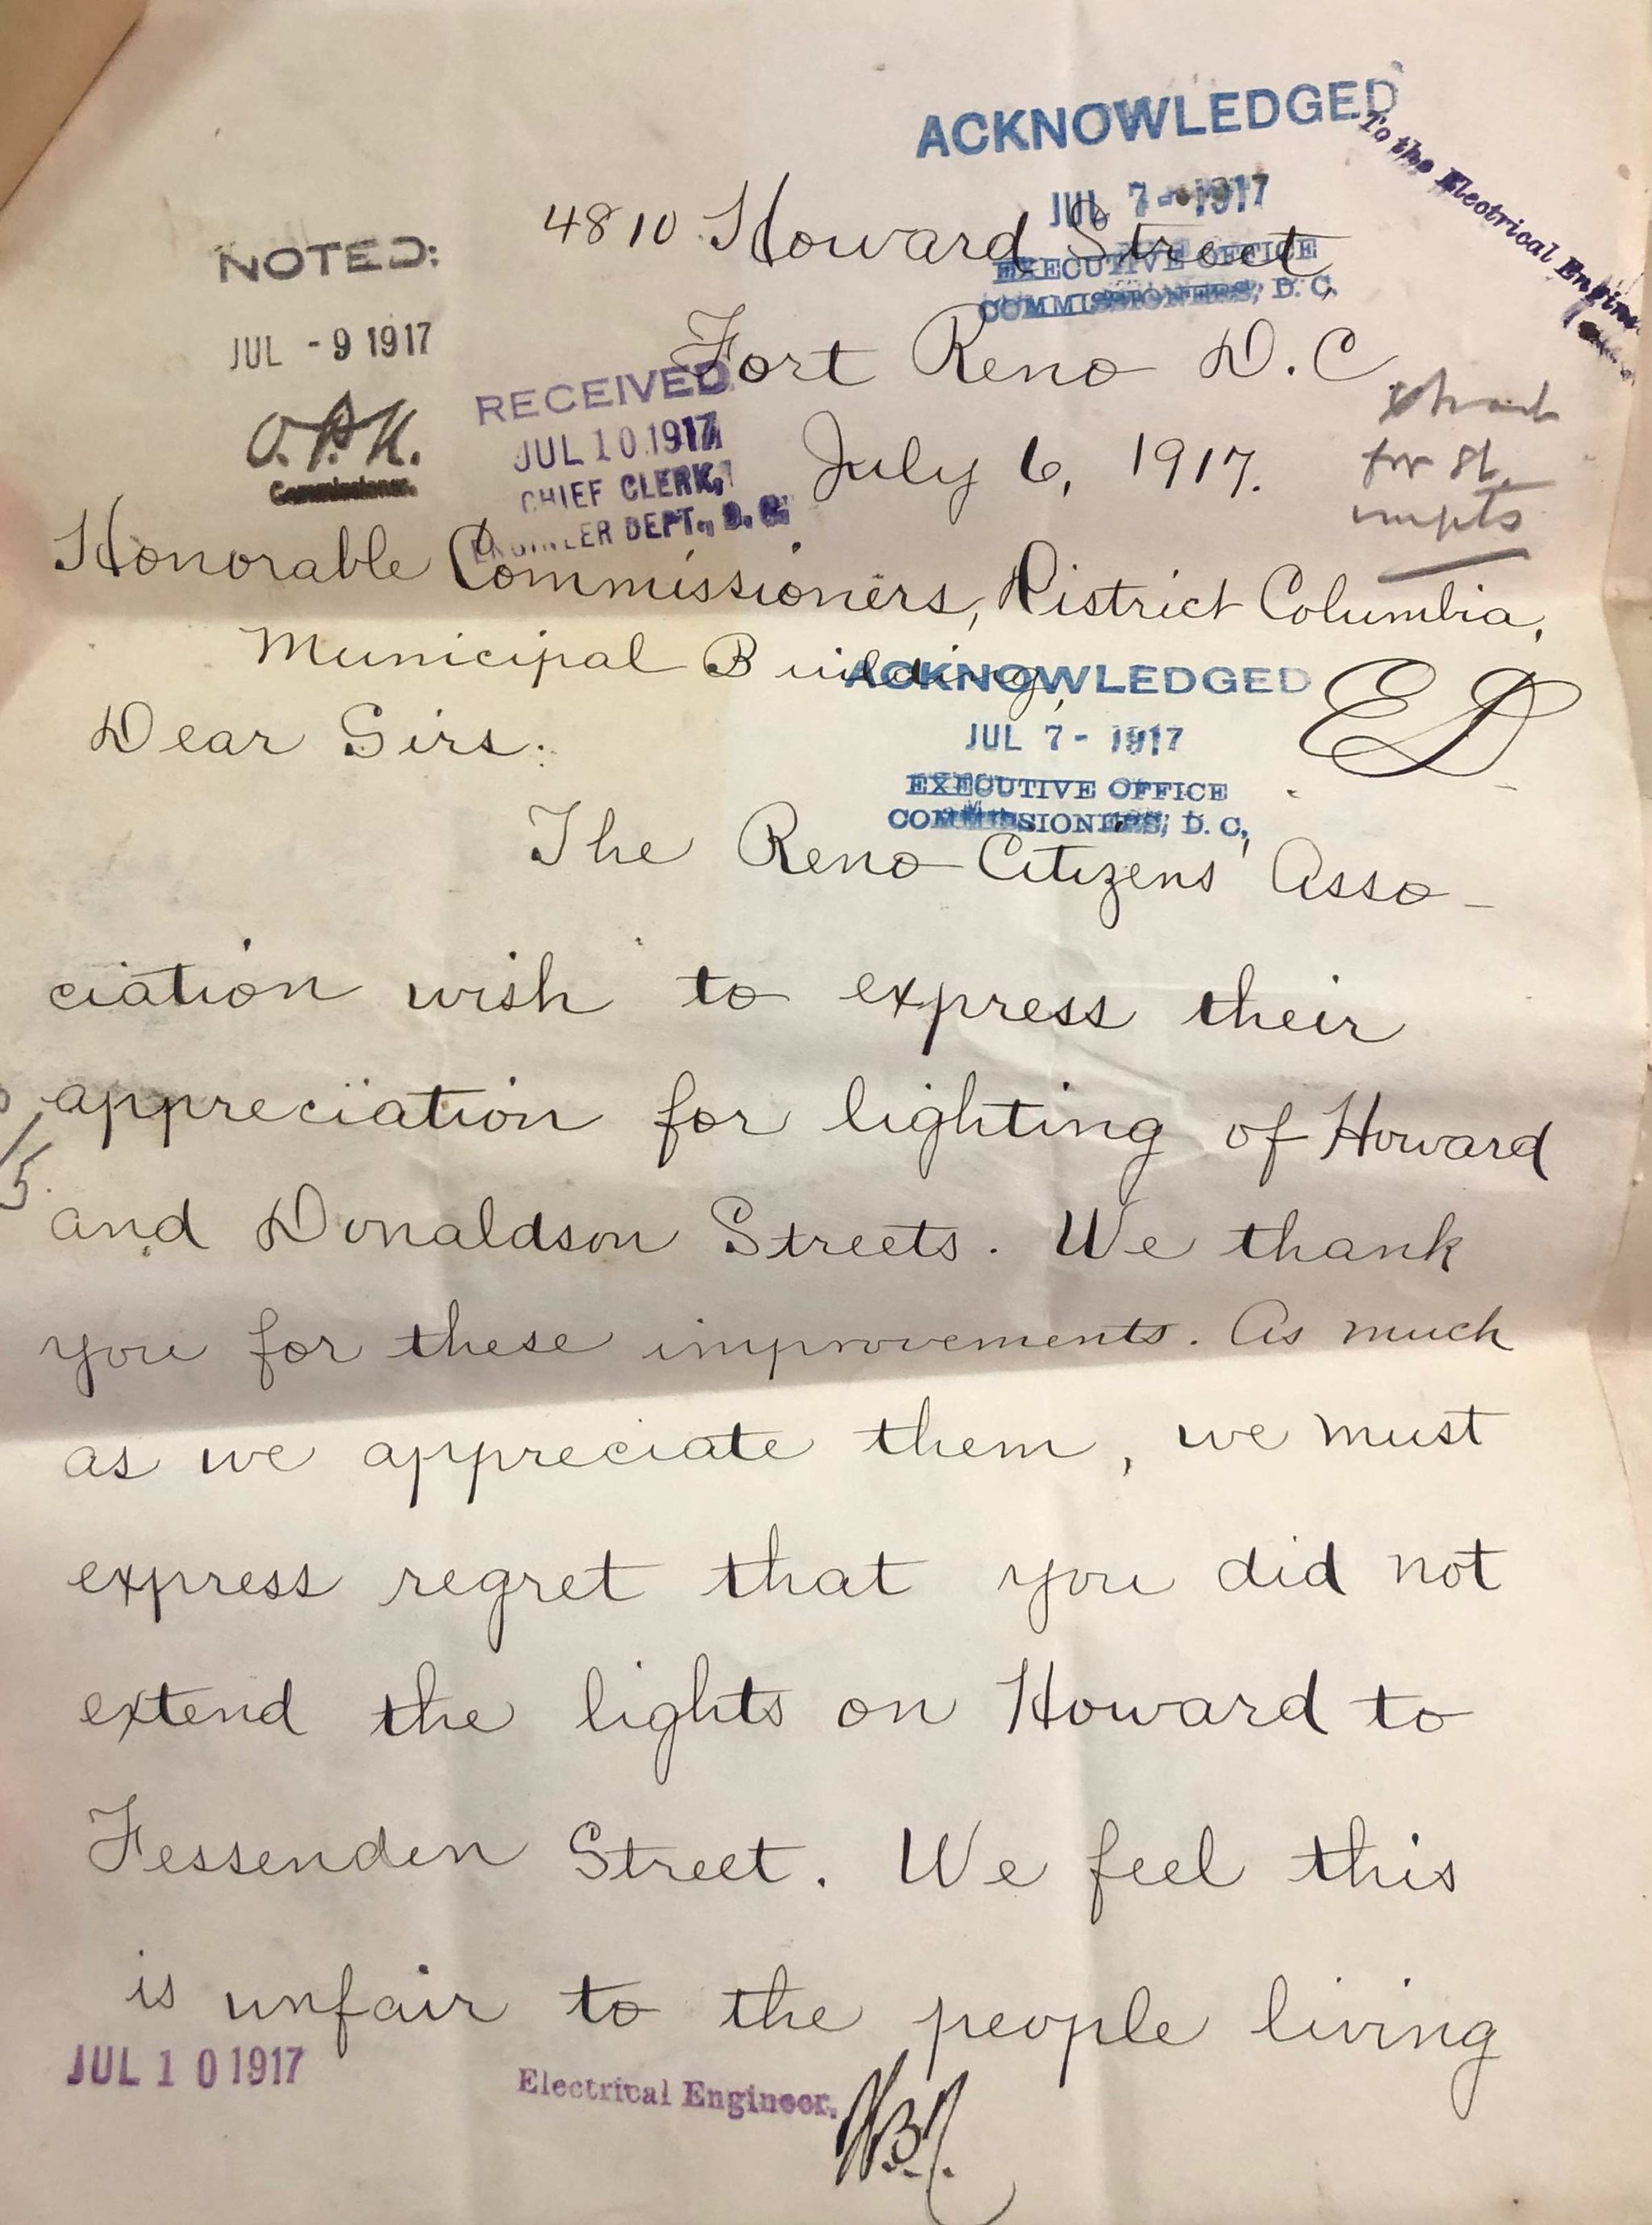 ACKNOWLEDGED
To the Electrical
JUL 7 - 1917
4810 Howard Street
EXECUTIVE OFFICE
COMMISSIONERS, D. C.
NOTED:
JUL - 9 1917
Fort Reno D.C.
RECEIVED
JUL 10 1917
CHIEF CLERK,
ENGINEER DEPT., D. C.
Commissioner.
July 6, 1917.
for St.
Honorable Commissioners, District Columbia,
Municipal Building,
ACKNOWLEDGED
JUL 7 - 1917
EXECUTIVE OFFICE
COMMISSIONERS, D. C,
Dear Sirs:
The Reno Citizens' Asso-
ciation wish to express their
appreciation for lighting of Howard
and Donaldson Streets. We thank
you for these improvements. As much
as we appreciate them, we must
express regret that you did not
extend the lights on Howard to
Fessenden Street. We feel this
is unfair to the people living
JUL 10 1917
Electrical Engineer.